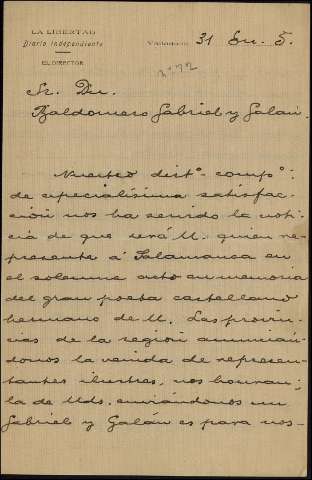 LA LIBERTAD
Diario Independiente
EL DIRECTOR
Valladolid 31 En. 5.
nº 72
Sr. Dn.
Baldomero Gabriel y Galán.
Nuestro distº. compº:
de especialísima satisfac-
ción nos ha servido la noti-
cia de que será U. quien re-
presente á Salamanca en
el solemne acto en memoria
del gran poeta castellano
hermano de U. Las provin-
cias de la región anuncián-
donos la venida de represen-
tantes ilustres, nos honran;
la de Uds. enviándonos un
Gabriel y Galán es para nos-